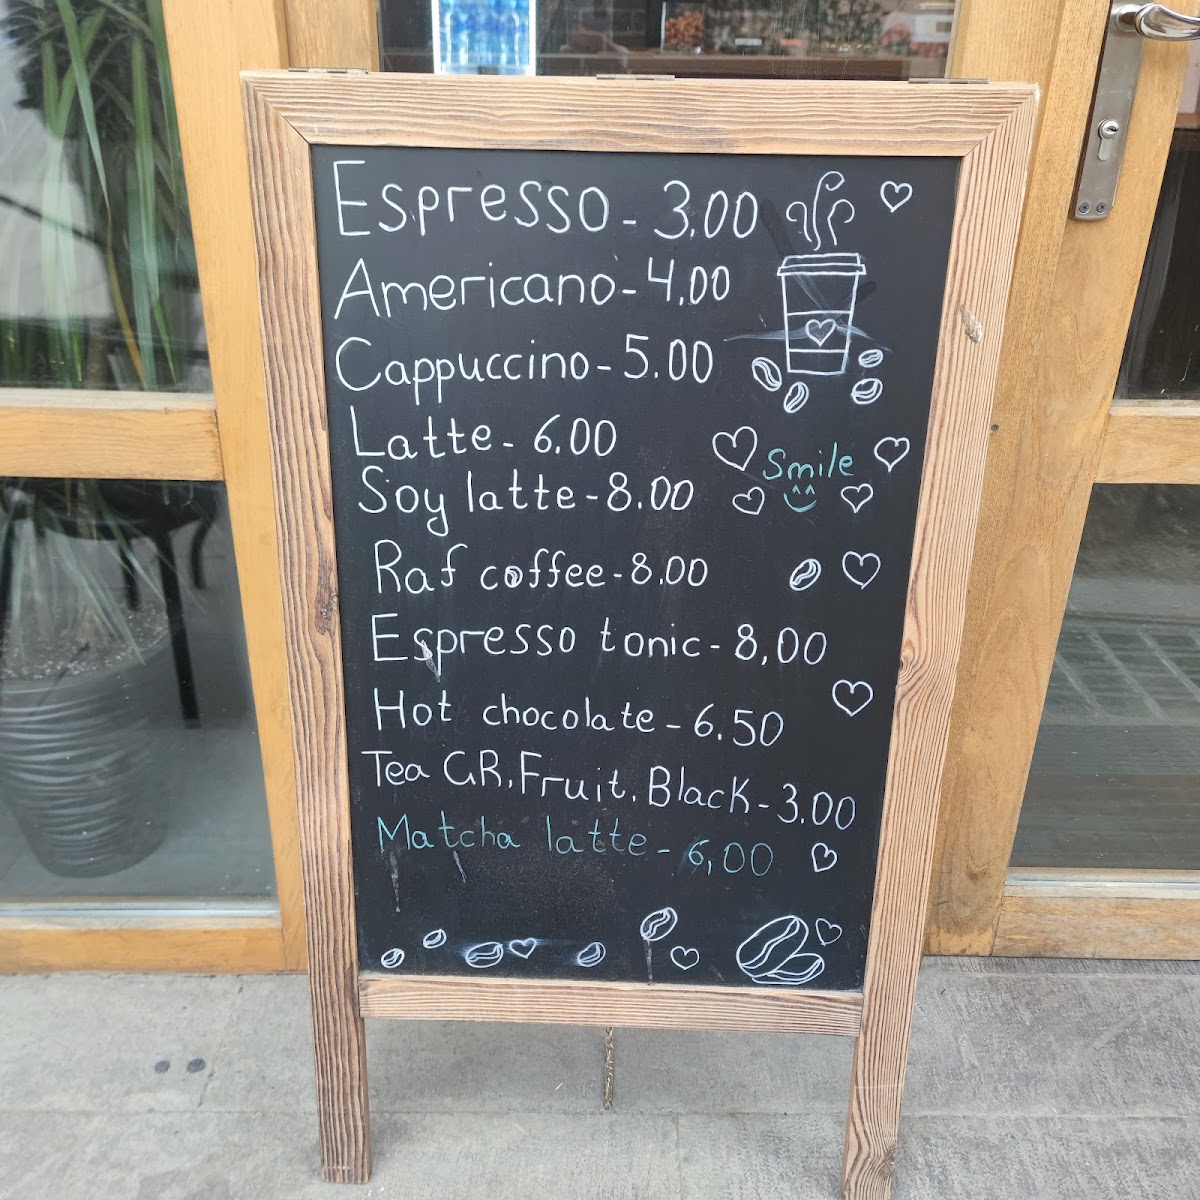 Espresso - 3,00
Americano - 4,00
Cappuccino - 5.00
Latte - 6.00
Smile
Soy latte - 8.00
Raf coffee - 8,00
Espresso tonic - 8,00
Hot chocolate - 6.50
Tea GR, Fruit, Black - 3.00
Matcha latte - 6,00